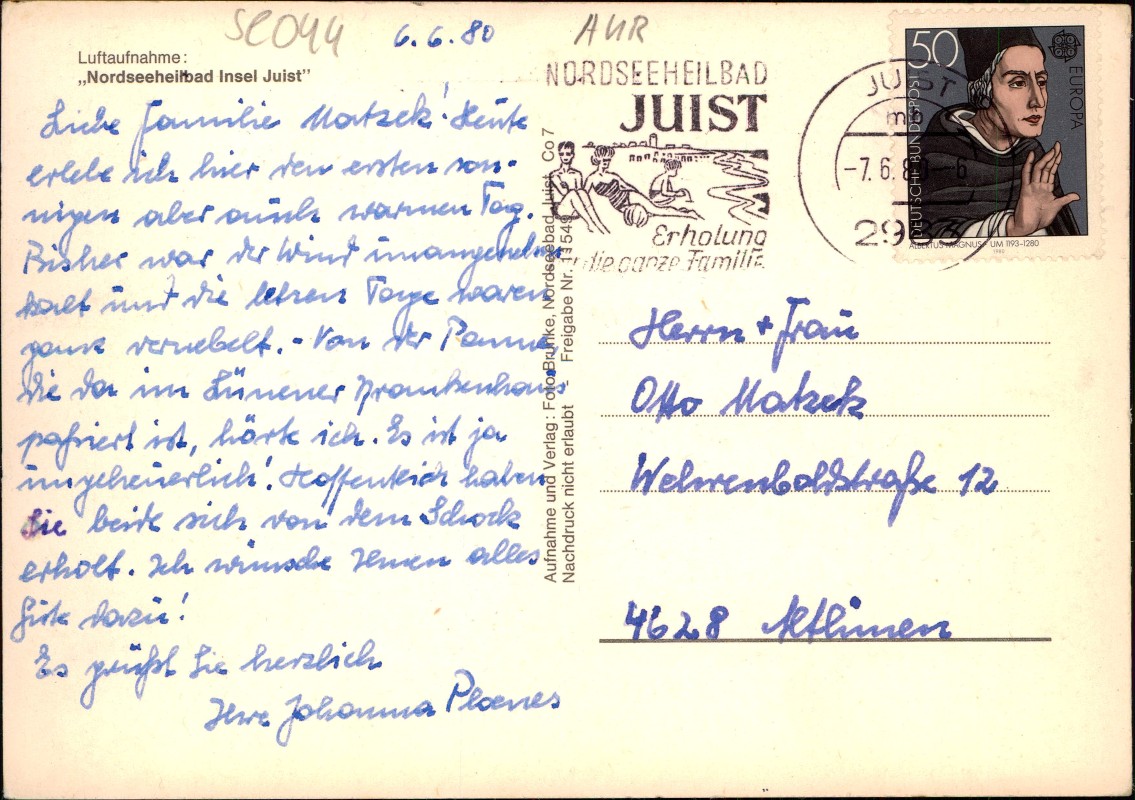 SC044
6.6.80
AUR
Luftaufnahme:
„Nordseeheilbad Insel Juist"
Liebe Familie Matzek! Heute
erlebe ich hier den ersten son-
nigen aber auch warmen Tag.
Bisher war der Wind unangenehm
kalt und die letzten Tage waren
ganz vernebelt. - Von der Panne,
die da im Lünener Krankenhaus
passiert ist, hörte ich. Es ist ja
ungeheuerlich! Hoffentlich haben
Sie beide sich von dem Schock
erholt. Ich wünsche Ihnen alles
Gute dazu!
Es grüßt Sie herzlich
Ihre Johanna Ploenes
Aufnahme und Verlag: Foto Brunke, Nordseebad Juist Co 7
Nachdruck nicht erlaubt - Freigabe Nr.
NORDSEEHEILBAD
JUIST
Erholung
die ganze Familie
JUIST
-7.6.80-6
50
EUROPA
DEUTSCHE BUNDESPOST
ALBERTUS MAGNUS UM 1193-1280
1980
Herrn + Frau
Otto Matzek
Wehrenboldstraße 12
4628 Altlünen